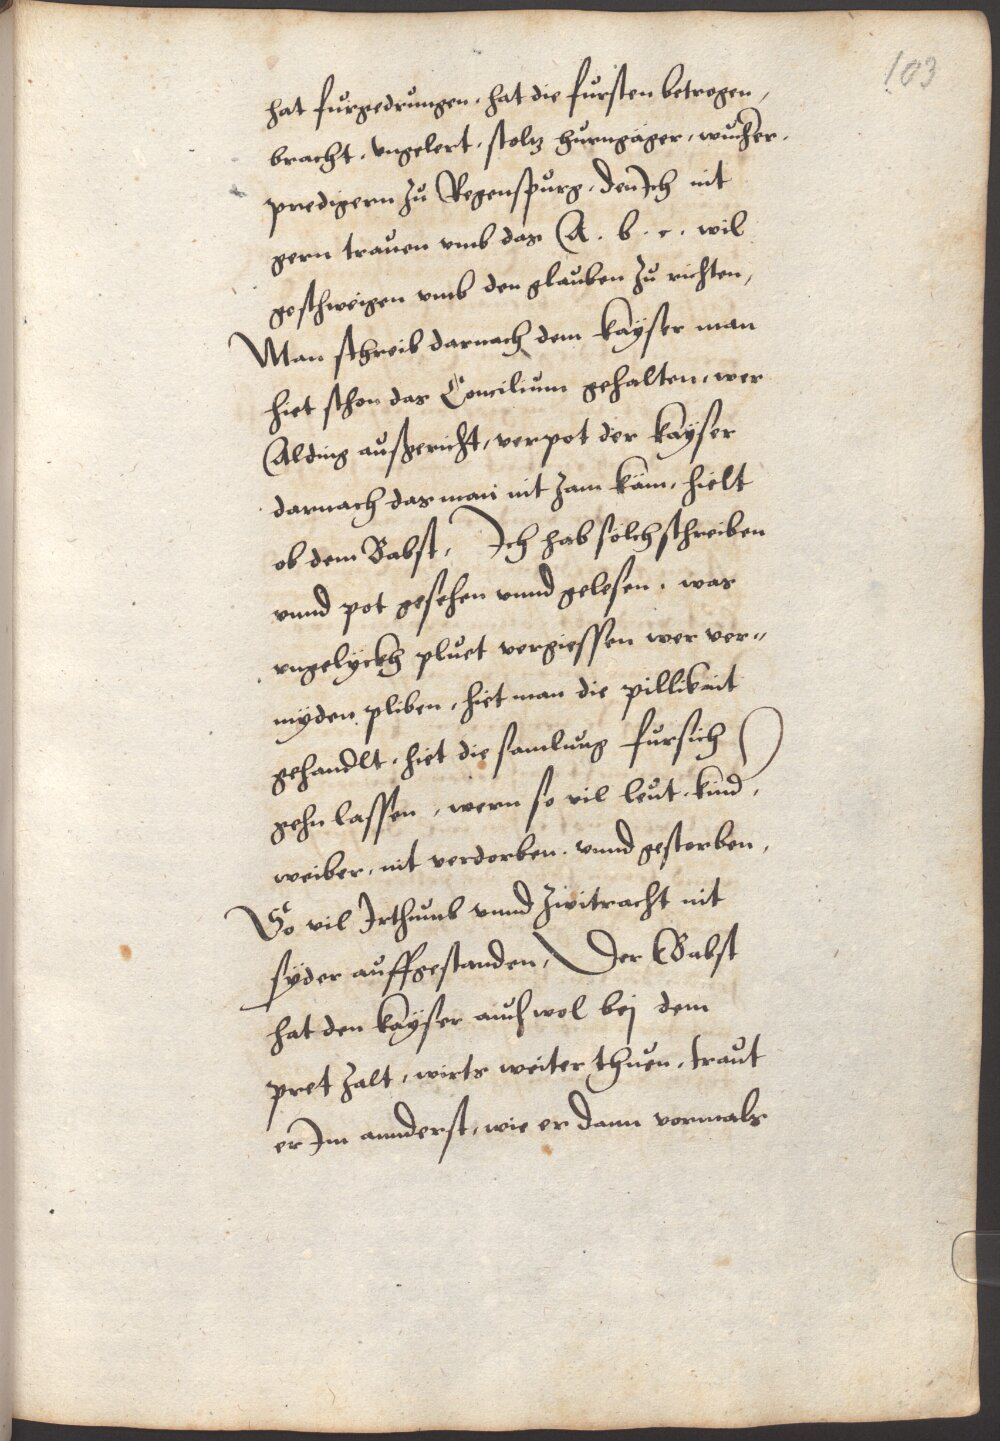 103
hat furgedrungen, hat die fursten betrogen,
bracht, vngelert, stoltz hurngäger, wucher,
predigern zu Regenspurg, den Ich nit
gern trauen vmb das A. b. c. wil
geschweigen vmb den glauben zu richten,
Man schreib darnach dem kayser man
hiet schon das Concilium gehalten, wer
Alding außgericht, verpot der kayser
darnach das man nit zam käm, hielt
ob dem Babst, Ich hab solch schreiben
vnnd pot gesehen vnnd gelesen, was
vngelyckh pluet vergiessen wer ver=
myden pliben, hiet man die pillikait
gehandlt, hiet die samlung fursich
gehn lassen, wern so vil leut, kind,
weiber, nit verdorben, vnnd gestorben,
So vil Irthumb vnnd zwitracht nit
syder auffgestanden, Der Babst
hat den kayser auch wol bej dem
pret zalt, wirts weiter thuen, traut
er Im annderst, wie er dann vormals